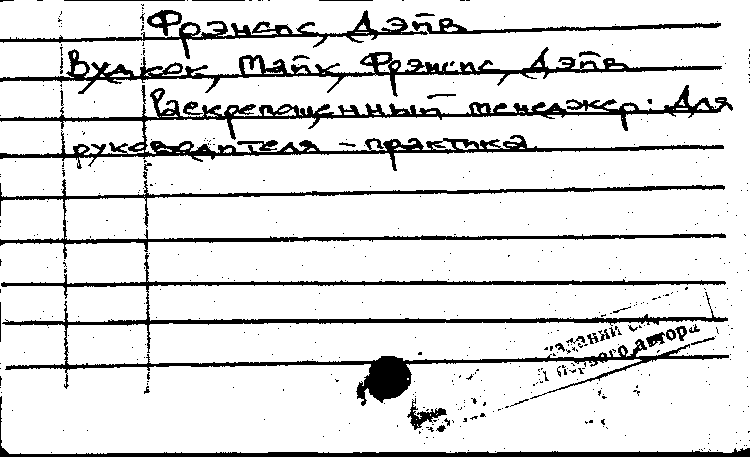 Фрэнсис, Дэйв
Вудкок, Майк, Фрэнсис, Дэйв
Раскрепощенный менеджер: Для
руководителя - практика
изданий см.
первого автора